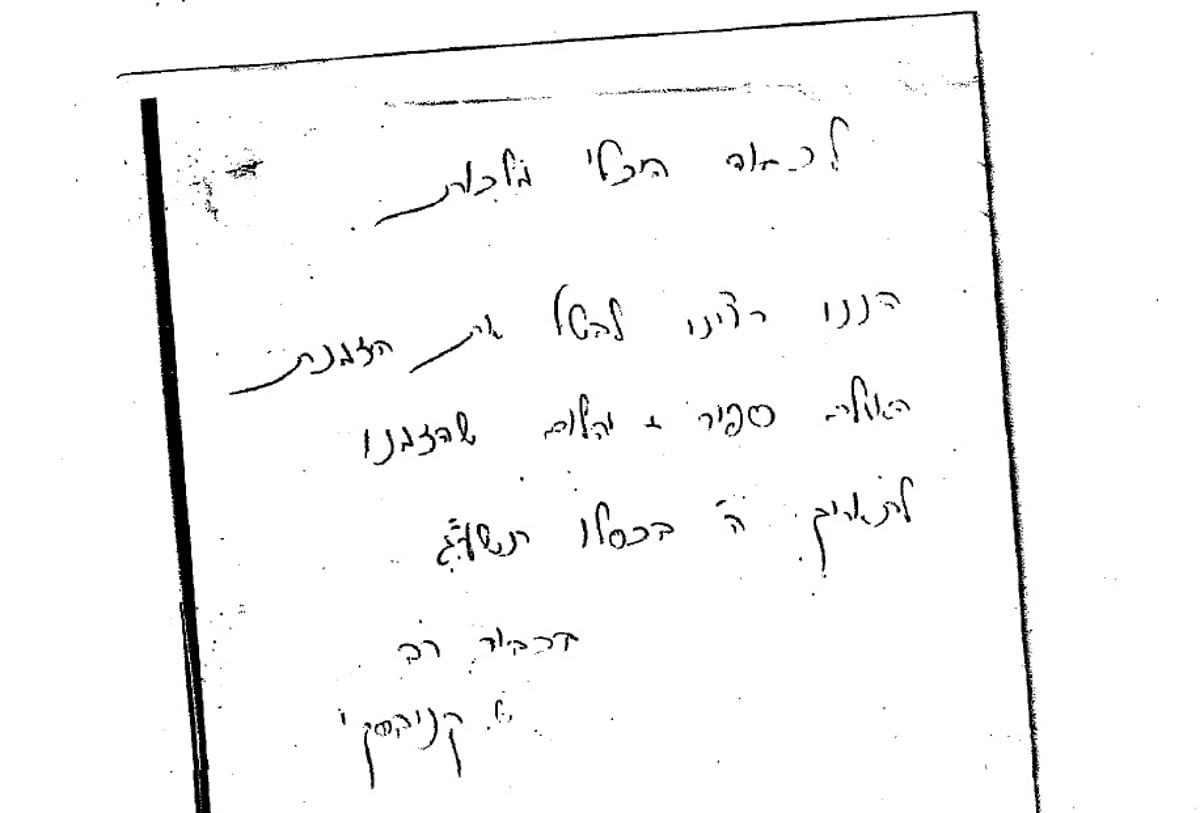 לכבוד היכלי מלכות
הננו רצינו לבטל את הזמנת
האולם ספיר + יהלום שהזמנו
לתאריך ה' בכסלו תשע"ג
בכבוד רב
קניבסקי